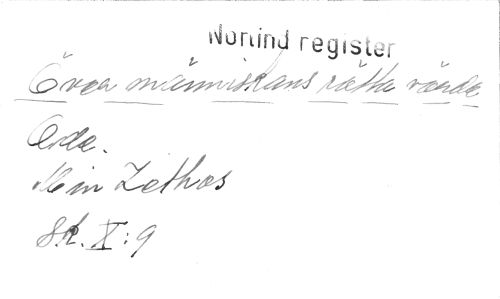 Norlind register
Över människans rätta värde
Ode.
Min Zethos
Sk. X:9